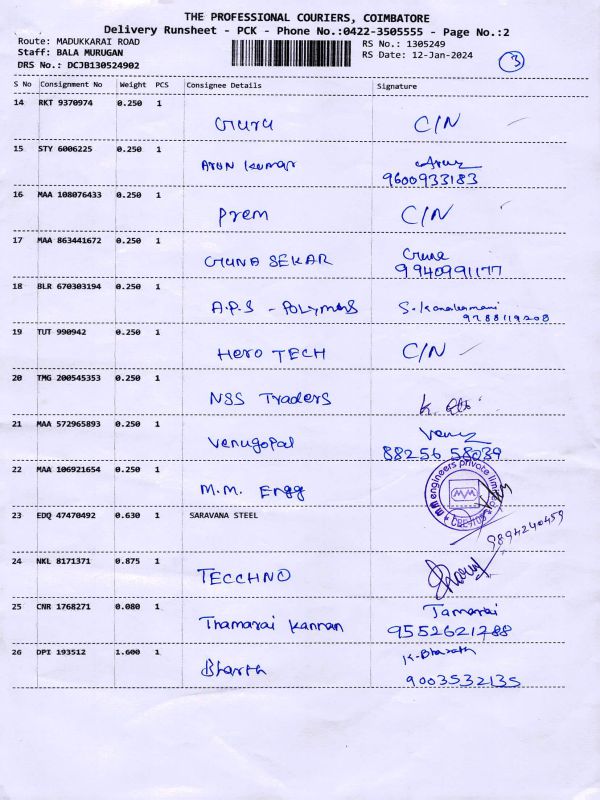 THE PROFESSIONAL COURIERS, COIMBATORE
Delivery Runsheet - PCK - Phone No.:0422-3505555 - Page No.:2
Route: MADUKKARAI ROAD RS No.: 1305249
Staff: BALA MURUGAN RS Date: 12-Jan-2024
DRS No.: DCJB130524902 3
S No Consignment No Weight PCS Consignee Details Signature
14 RKT 9370974 0.250 1
Guru C/N
15 STY 6006225 0.250 1
Arun Kumar Arun
9600933183
16 MAA 108076433 0.250 1
Prem C/N
17 MAA 863441672 0.250 1
GUNA SEKAR Guna
9940991177
18 BLR 670303194 0.250 1
A.P.S - Polymers S.
9788119208
19 TUT 990942 0.250 1
Hero TECH C/N
20 TMG 200545353 0.250 1
NSS Traders K.
21 MAA 572965893 0.250 1
Venugopal Venu
88256 58039
22 MAA 106921654 0.250 1
M.M. Engg
engineers private
23 EDQ 47470492 0.630 1 SARAVANA STEEL
9894240459
24 NKL 8171371 0.875 1
TECCHNO
25 CNR 1768271 0.080 1 Tamarai
Thamarai Kannan 9552621288
26 DPI 193512 1.600 1 K-Bharath
Bharth
9003532135